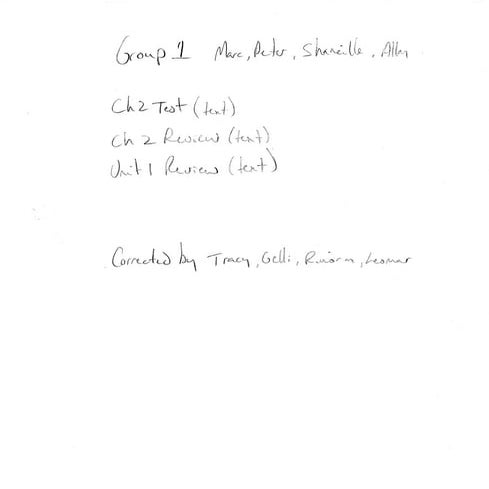 Group 1 Marc, Peter, Shaneille, Allen
Ch 2 Test (text)
Ch 2 Review (text)
Unit 1 Review (text)
Corrected by Tracy, Gelli,